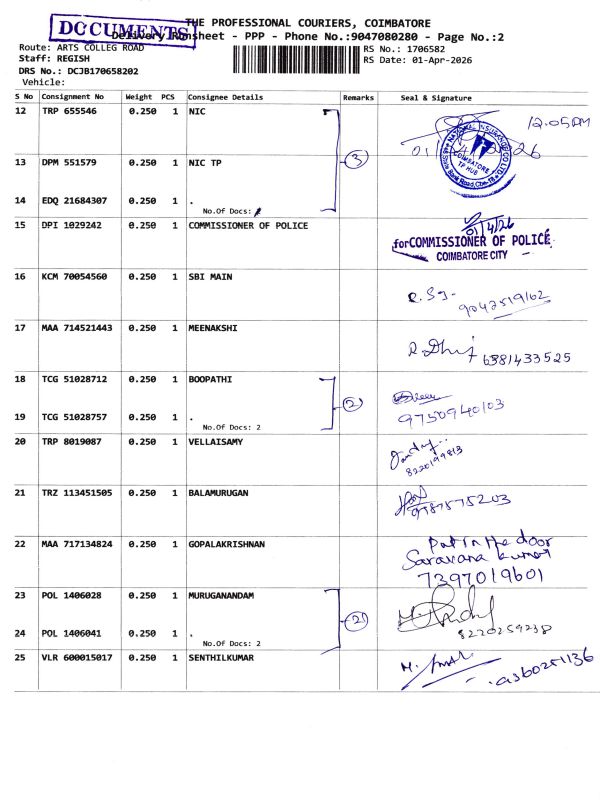 DOCUMENTS
THE PROFESSIONAL COURIERS, COIMBATORE
Delivery Runsheet - PPP - Phone No.:9047080280 - Page No.:2
Route: ARTS COLLEG ROAD
Staff: REGISH
DRS No.: DCJB170658202
Vehicle:
RS No.: 1706582
RS Date: 01-Apr-2026
S No Consignment No Weight PCS Consignee Details Remarks Seal & Signature
12 TRP 655546 0.250 1 NIC 12.05PM
13 DPM 551579 0.250 1 NIC TP 3
COIMBATORE
TP HUB
14 EDQ 21684307 0.250 1 .
No.Of Docs:
15 DPI 1029242 0.250 1 COMMISSIONER OF POLICE 01/4/26
for COMMISSIONER OF POLICE
COIMBATORE CITY
16 KCM 70054560 0.250 1 SBI MAIN
9042519162
17 MAA 714521443 0.250 1 MEENAKSHI
6381433525
18 TCG 51028712 0.250 1 BOOPATHI 2
9750940103
19 TCG 51028757 0.250 1 .
No.Of Docs: 2
20 TRP 8019087 0.250 1 VELLAISAMY
8220199813
21 TRZ 113451505 0.250 1 BALAMURUGAN
9787575203
22 MAA 717134824 0.250 1 GOPALAKRISHNAN Put in the door
Saravana kumar
7397019601
23 POL 1406028 0.250 1 MURUGANANDAM 2
24 POL 1406041 0.250 1 .
8220259238
No.Of Docs: 2
25 VLR 600015017 0.250 1 SENTHILKUMAR